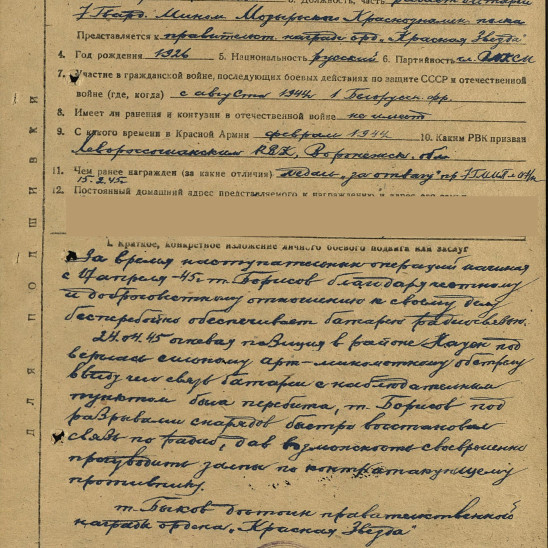 5. Должность, часть
7 Гвард. Мином. Мозырьского Краснознамен. полка
Представляется к правительст. награде орд. „Красная Звезда"
4. Год рождения 1926 5. Национальность русский 6. Партийность чл. ВЛКСМ
7. Участие в гражданской войне, последующих боевых действиях по защите СССР и отечественной
войне (где, когда) с августа 1944 1 Белорусск. фр.
8. Имеет ли ранения и контузии в отечественной войне не имеет
9. С какого времени в Красной Армии февраль 1944 10. Каким РВК призван
Леворосошанским РВК, Воронежск. обл.
11. Чем ранее награжден (за какие отличия) медаль „за отвагу" пр 7 ГМП
15.2.45
12. Постоянный домашний адрес представляемого к награждению и адрес его семьи
I. Краткое, конкретное изложение личного боевого подвига или заслуг
За время наступательных операций начиная
с апреля-45г т. Борисов благодаря честному
и добросовестному отношению к своему делу
бесперебойно обеспечивает батарею радиосвязью.
24.04.45 огневая позиция в районе под
верглась сильному арт-минометному обстрелу
ввиду чего связь батареи с наблюдательным
пунктом была перебита, т. Борисов под
разрывами снарядов быстро восстановил
связь по радио, дав возможность своевременно
производить залпы по контратакующему
противнику.
т. Быков достоин правительственной
награды ордена „Красная Звезда"
для подшивки